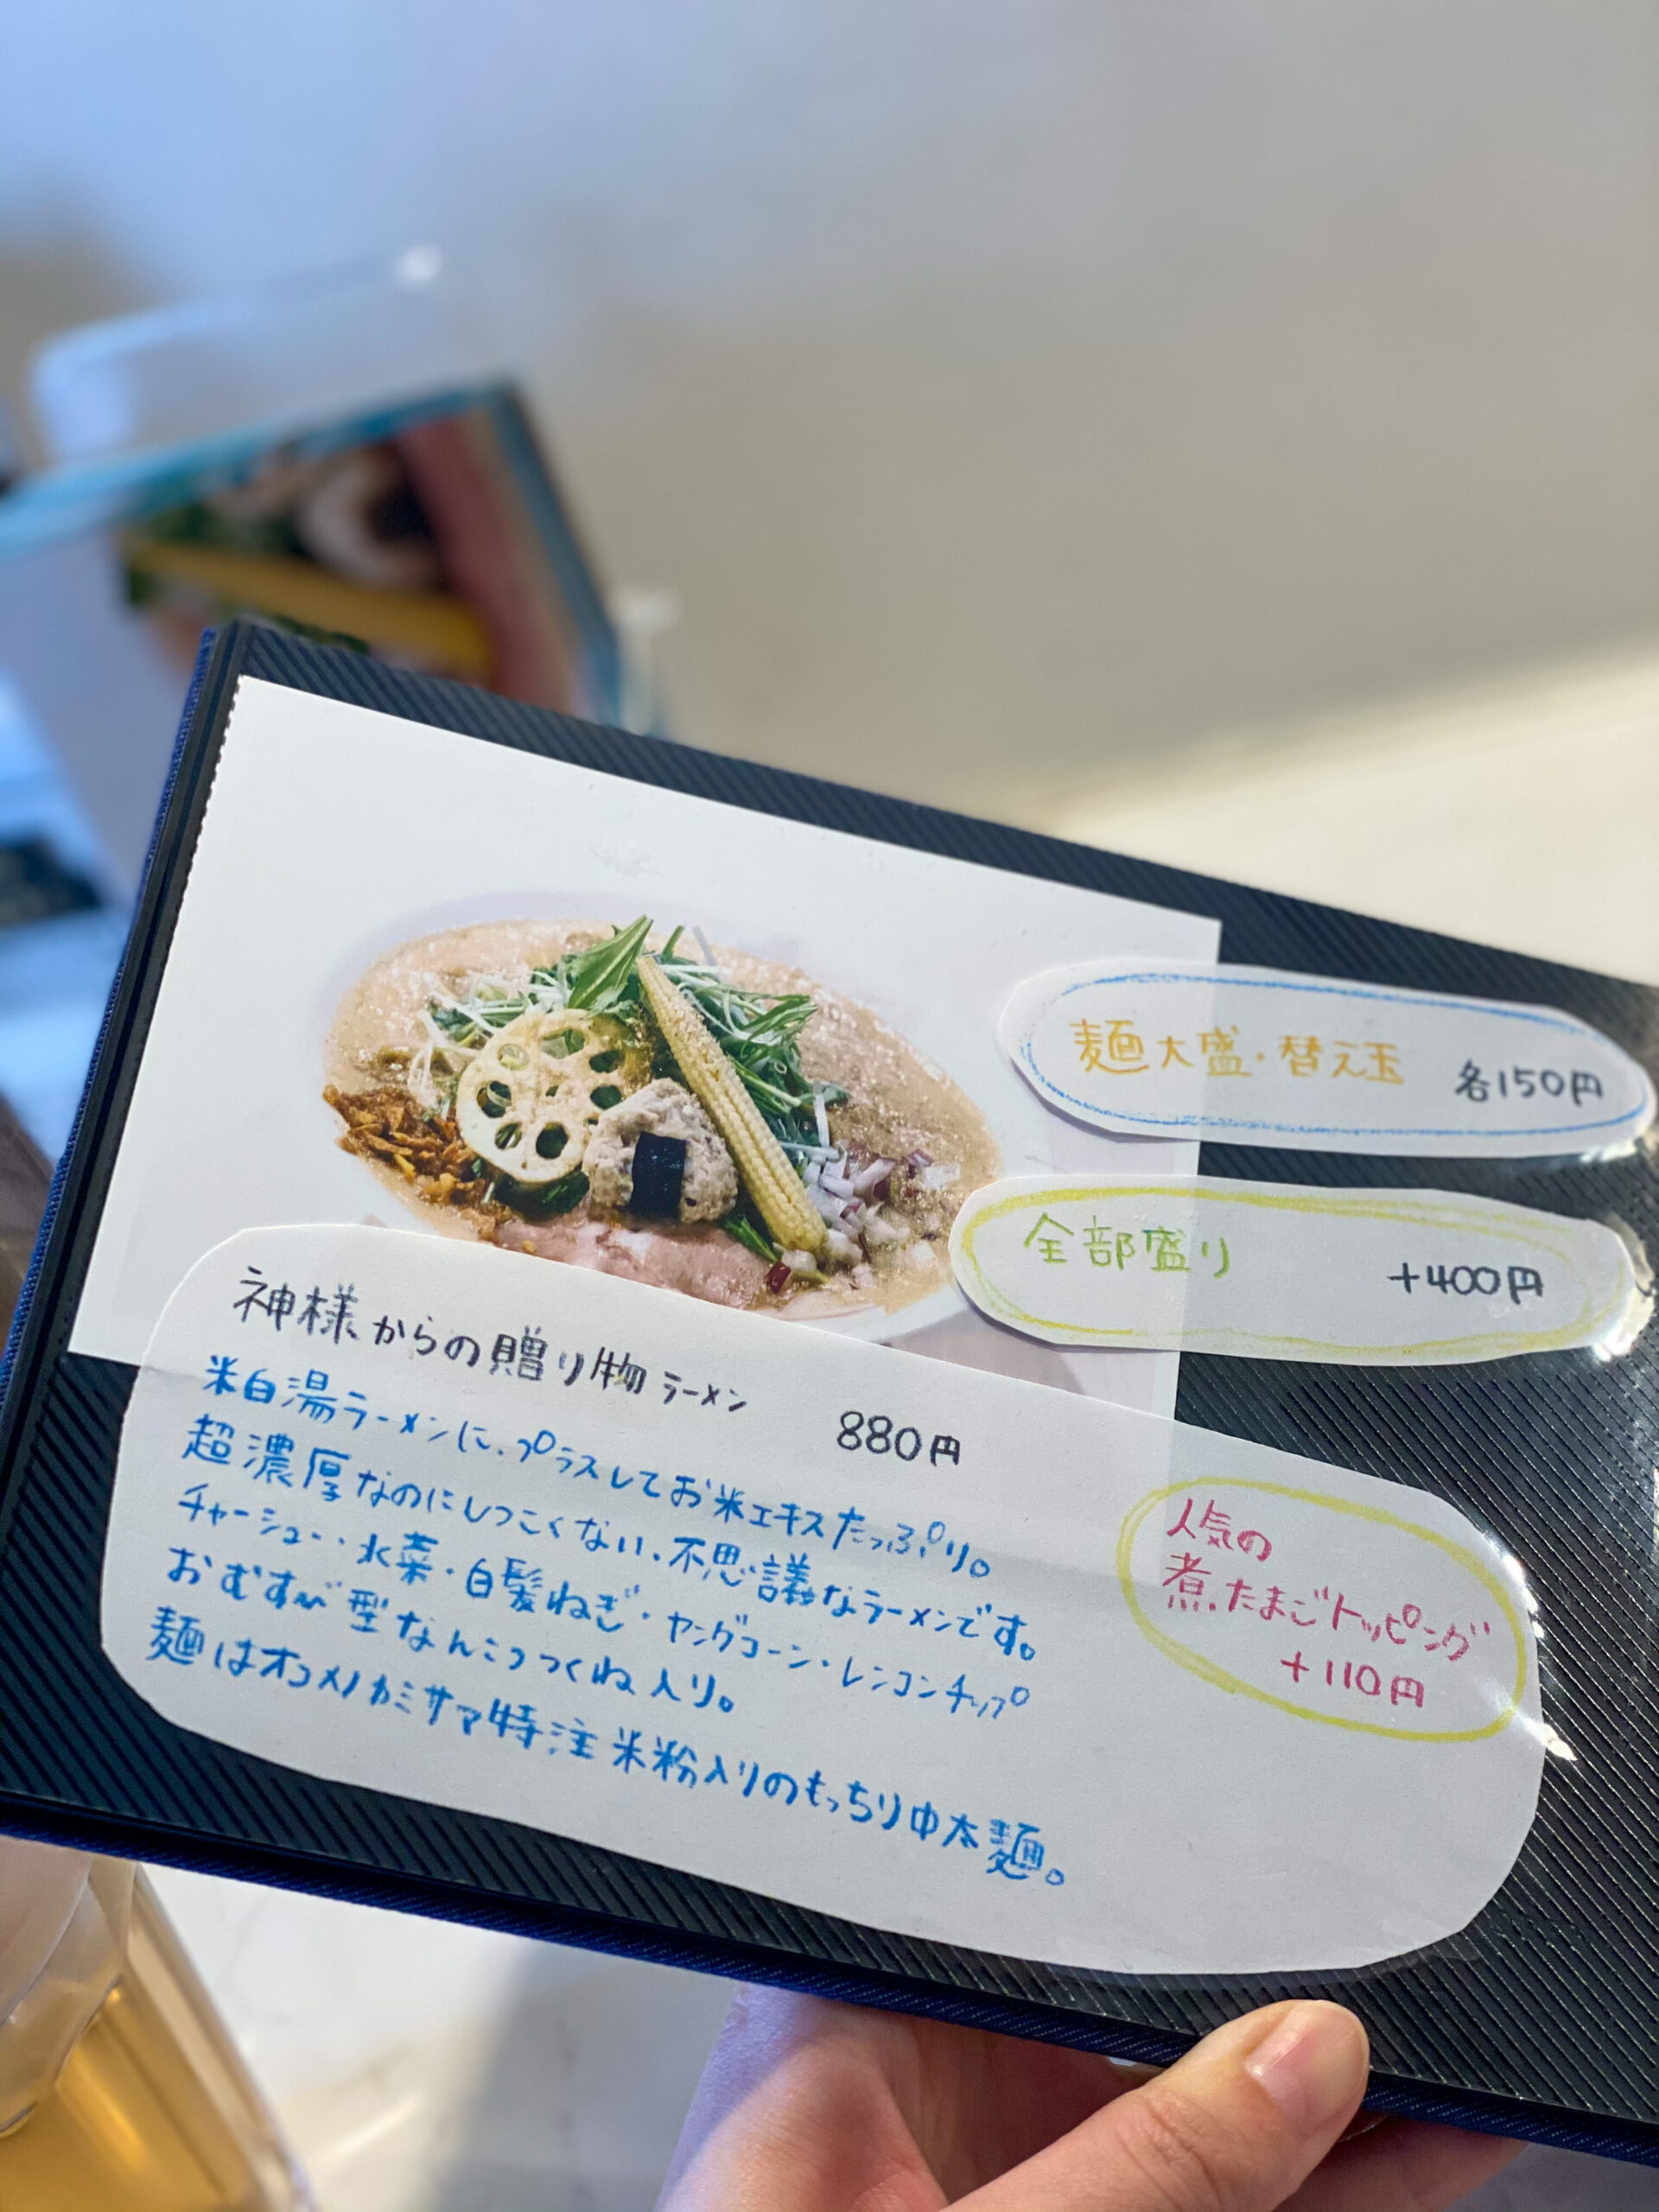 麺大盛・替え玉 各150円
全部盛り +400円
神様からの贈り物ラーメン 880円
米白湯ラーメンに、プラスしてお米エキスたっぷり。
超濃厚なのにしつこくない、不思議なラーメンです。
チャーシュー・水菜・白髪ねぎ・ヤングコーン・レンコンチップ
おむすび型なんこつつくね入り。
麺はオコメノカミサマ特注米粉入りのもっちり中太麺。
人気の
煮たまごトッピング
+110円